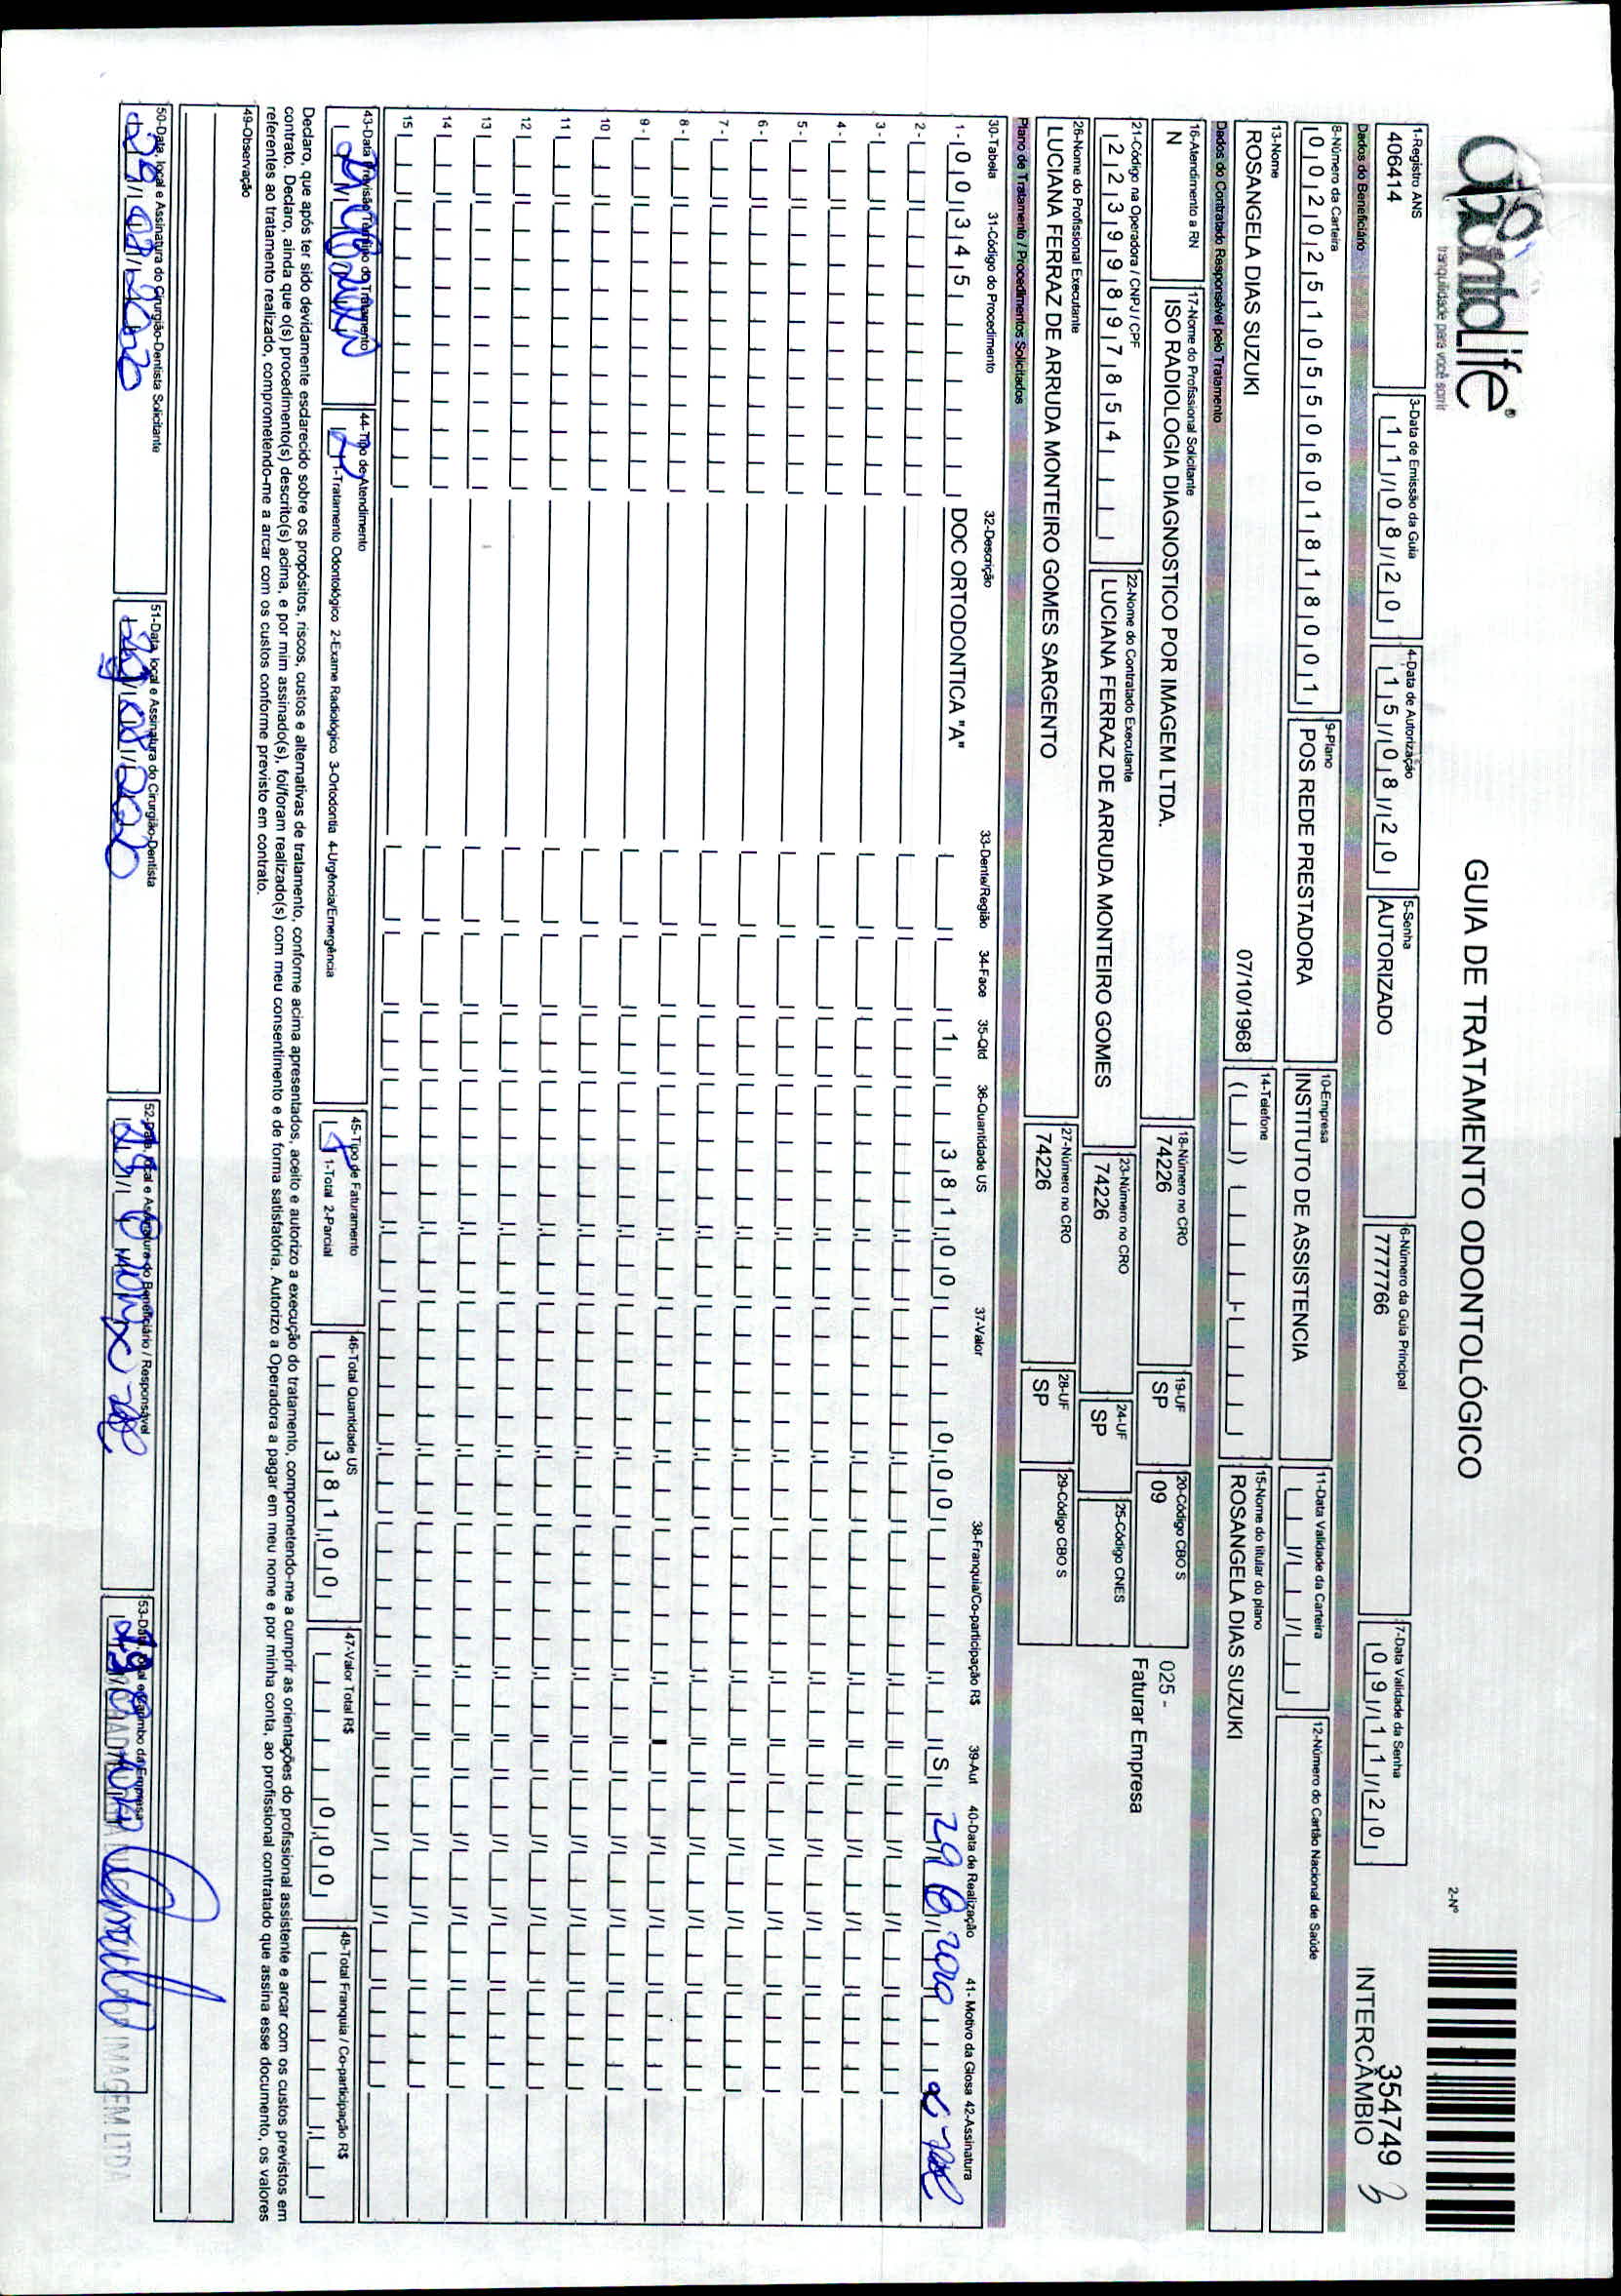 OdontoLife®
tranquilidade para você sorrir
GUIA DE TRATAMENTO ODONTOLÓGICO
2-Nº
354749 3
INTERCÂMBIO
1-Registro ANS
406414
3-Data de Emissão da Guia
11/08/20
4-Data de Autorização
15/08/20
5-Senha
AUTORIZADO
6-Número da Guia Principal
7777766
7-Data Validade da Senha
09/11/20
Dados do Beneficiário
8-Número da Carteira
00202510550601818001
9-Plano
POS REDE PRESTADORA
10-Empresa
INSTITUTO DE ASSISTENCIA
11-Data Validade da Carteira
12-Número do Cartão Nacional de Saúde
13-Nome
ROSANGELA DIAS SUZUKI 07/10/1968
14-Telefone
15-Nome do titular do plano
ROSANGELA DIAS SUZUKI
Dados do Contratado Responsável pelo Tratamento
16-Atendimento a RN
N
17-Nome do Profissional Solicitante
ISO RADIOLOGIA DIAGNOSTICO POR IMAGEM LTDA.
18-Número no CRO
74226
19-UF
SP
20-Código CBO S
09
025 -
Faturar Empresa
21-Código na Operadora / CNPJ / CPF
22399897854
22-Nome do Contratado Executante
LUCIANA FERRAZ DE ARRUDA MONTEIRO GOMES
23-Número no CRO
74226
24-UF
SP
25-Código CNES
26-Nome do Profissional Executante
LUCIANA FERRAZ DE ARRUDA MONTEIRO GOMES SARGENTO
27-Número no CRO
74226
28-UF
SP
29-Código CBO S
Plano de Tratamento / Procedimentos Solicitados
30-Tabela 31-Código do Procedimento 32-Descrição 33-Dente/Região 34-Face 35-Qtd 36-Quantidade US 37-Valor 38-Franquia/Co-participação R$ 39-Aut 40-Data de Realização 41- Motivo da Glosa 42-Assinatura
1- 00345 DOC ORTODONTICA "A" 1 381,00 0,00 S 29
2-
3-
4-
5-
6-
7-
8-
9-
10
11
12
13
14
15
43-Data Previsão Término do Tratamento
44-Tipo de Atendimento
2 1-Tratamento Odontológico 2-Exame Radiológico 3-Ortodontia 4-Urgência/Emergência
45-Tipo de Faturamento
1-Total 2-Parcial
46-Total Quantidade US
381,00
47-Valor Total R$
0,00
48-Total Franquia / Co-participação R$
Declaro, que após ter sido devidamente esclarecido sobre os propósitos, riscos, custos e alternativas de tratamento, conforme acima apresentados, aceito e autorizo a execução do tratamento, comprometendo-me a cumprir as orientações do profissional assistente e arcar com os custos previstos em
contrato. Declaro, ainda que o(s) procedimento(s) descrito(s) acima, e por mim assinado(s), foi/foram realizado(s) com meu consentimento e de forma satisfatória. Autorizo a Operadora a pagar em meu nome e por minha conta, ao profissional contratado que assina esse documento, os valores
referentes ao tratamento realizado, comprometendo-me a arcar com os custos conforme previsto em contrato.
49-Observação
50-Data, local e Assinatura do Cirurgião-Dentista Solicitante
51-Data, local e Assinatura do Cirurgião-Dentista
52-Data, local e Assinatura do Beneficiário / Responsável
53-Data, local e Carimbo da Empresa
IMAGEM LTDA